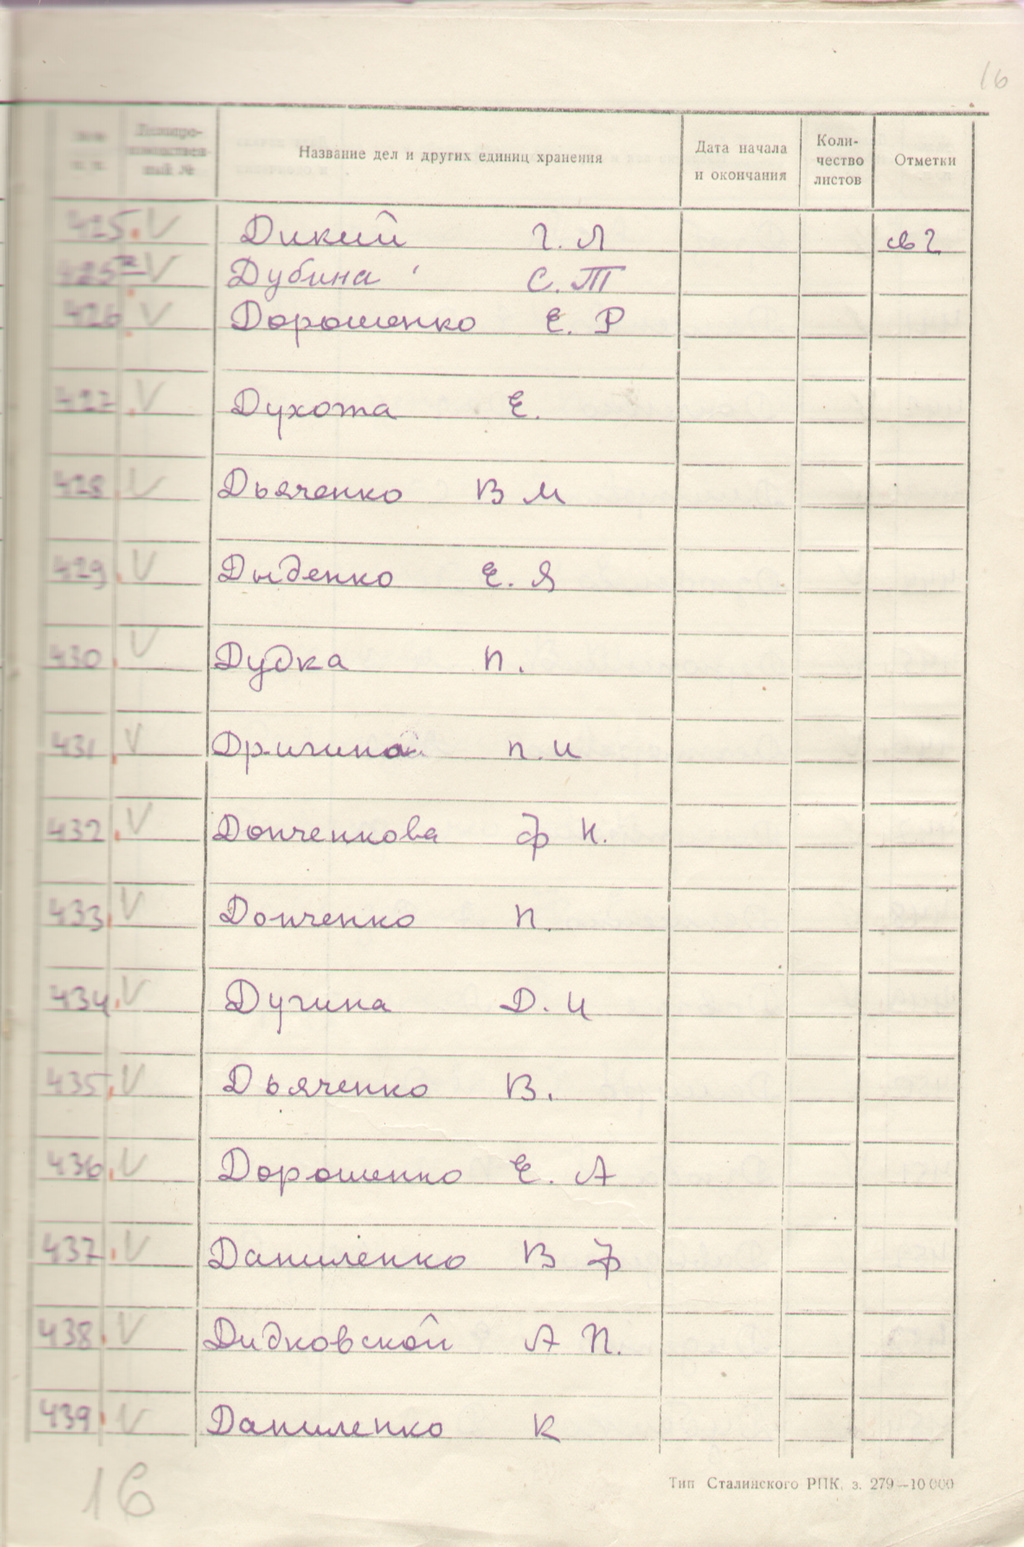 16
№№ п. п. Делопро-изводствен-ный № Название дел и других единиц хранения Дата начала и окончания Коли-чество листов Отметки
425. V Дикий Г. Л св 2
425а V Дубина С. Т
426. V Дорошенко Е. Р
427. V Духота Е.
428. V Дьяченко В М
429. V Дыденко Е. Я
430. V Дудка П.
431. V П. И
432. V Донченкова Ф К.
433. V Донченко П.
434. V Дугина Д. И
435. V Дьяченко В.
436. V Дорошенко Е. А
437. V Даниленко В Ф
438. V Дидковской А П.
439. V Даниленко К
Тип Сталинского РПК. з. 279—10 000
16